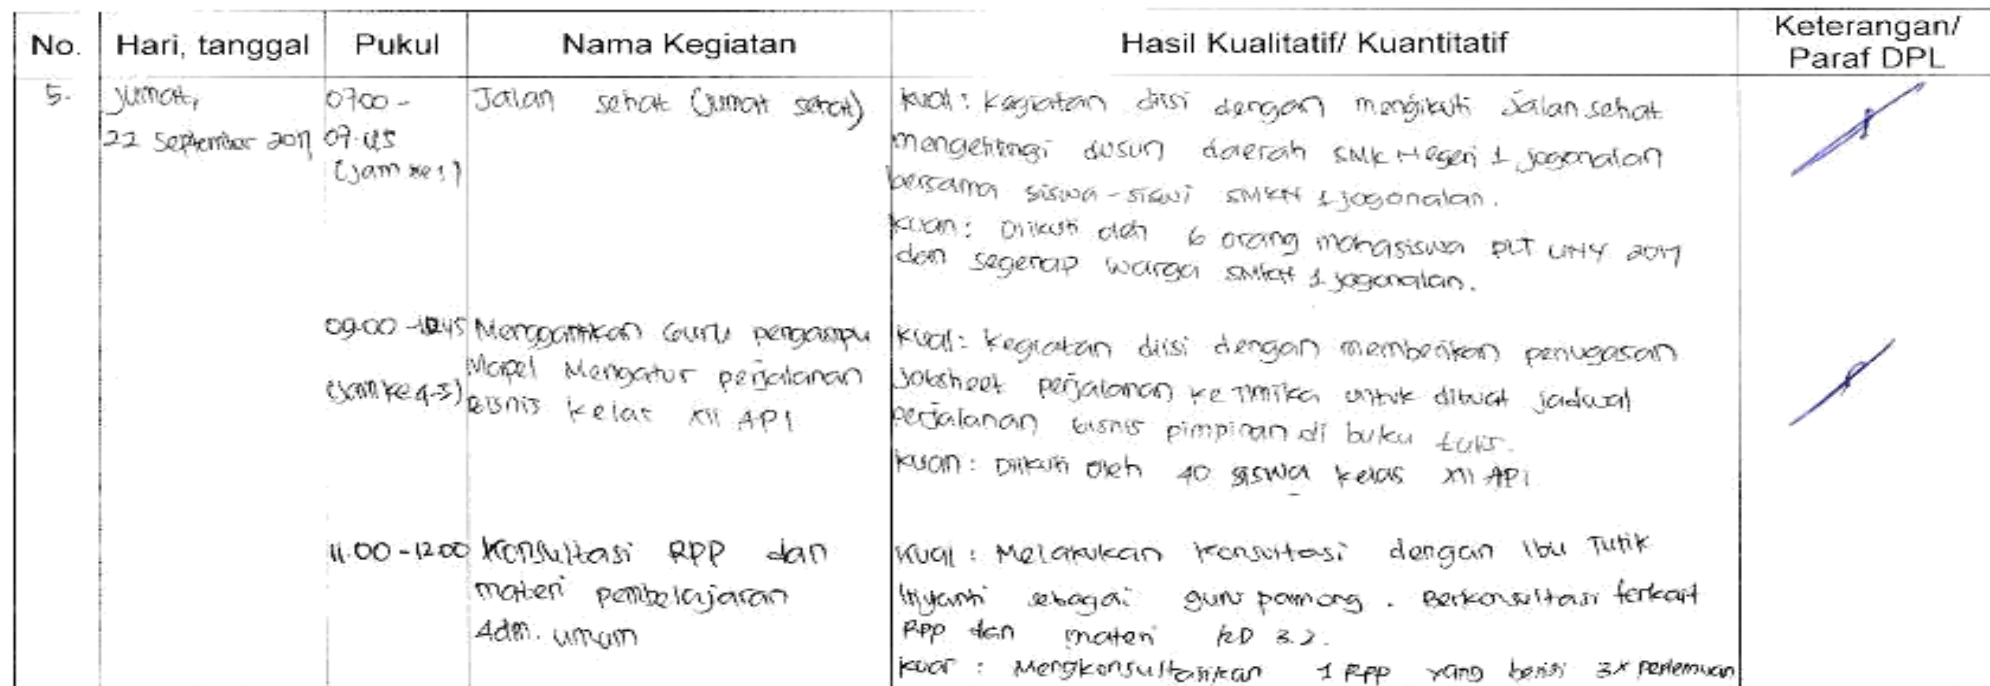 No. Hari, tanggal Pukul Nama Kegiatan Hasil Kualitatif/ Kuantitatif Keterangan/
Paraf DPL
5. Jumat,
22 September 2017
07.00 -
07.45
(jam ke 1)
Jalan sehat (Jumat sehat)
Kual : Kegiatan diisi dengan mengikuti jalan sehat
mengelilingi dusun daerah SMK Negeri 1 Jogonalan
bersama siswa-siswi SMKN 1 Jogonalan.
Kuan : Diikuti oleh 6 orang mahasiswa PLT UNY 2017
dan segenap warga SMKN 1 Jogonalan.
09.00 -10.45
(jam ke 4-5)
Menggantikan Guru pengampu
Mapel Mengatur perjalanan
Bisnis kelas XII AP1
Kual : Kegiatan diisi dengan memberikan penugasan
Jobsheet perjalanan ke Timika untuk dibuat jadwal
perjalanan bisnis pimpinan di buku tulis.
Kuan : Diikuti oleh 40 siswa kelas XII AP1
11.00 -12.00
Konsultasi RPP dan
materi pembelajaran
Adm. umum
Kual : Melakukan konsultasi dengan Ibu Tutik
sebagai guru pamong . Berkonsultasi terkait
RPP dan materi KD 3.2.
Kuan : Mengkonsultasikan 1 RPP yang berisi 3x pertemuan